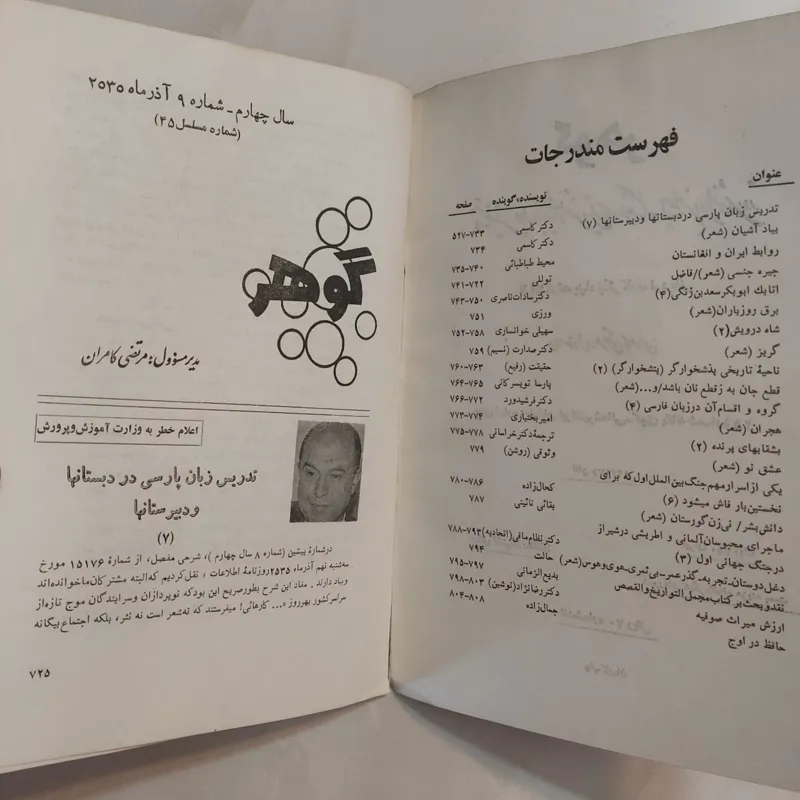 فهرست مندرجات
عنوان نویسنده،گوینده صفحه
تدریس زبان پارسی دردبستانها ودبیرستانها (۷) دکترکاسمی ۷۳۳-۵۲۷
بیاد آشیان (شعر) دکترکاسمی ۷۳۴
روابط ایران و افغانستان محیط طباطبائی ۷۴۰-۷۳۵
چیره جنسی (شعر)/فاضل توللی ۷۲۲-۷۴۱
اتابك ابوبکرسعدبن‌زنگی(۴) دکترسادات‌ناصری ۷۵۰-۷۴۳
برق روزباران(شعر) ورزی ۷۵۱
شاه درویش(۲) سهیلی خوانساری ۷۵۸-۷۵۲
گریز (شعر) دکترصدارت (نسیم) ۷۵۹
ناحیهٔ تاریخی پذشخوارگر (پتشخوارگر) (۲) حقیقت (رفیع) ۷۶۳-۷۶۰
قطع جان به زقطع نان باشد/و...(شعر) پارسا تویسرکانی ۷۶۵-۷۶۴
گروه و اقسام‌آن درزبان فارسی (۴) دکترفرشیدورد ۷۷۲-۷۶۶
هجران (شعر) امیربختیاری ۷۷۴-۷۷۳
بشقابهای پرنده (۲) ترجمهٔ‌دکترخراسانی ۷۷۸-۷۷۵
عشق نو (شعر) وثوقی (روشن) ۷۷۹
یکی ازاسرارمهم‌جنگ‌بین‌الملل‌اول‌که برای
نخستین‌بار فاش میشود (۶) کحال‌زاده ۷۸۶-۷۸۰
دانش‌بشر/ نی‌زن‌گورستان (شعر) بقائی نائینی ۷۸۷
ماجرای محبوسان‌آلمانی و اطریشی درشیراز
درجنگ جهانی اول (۳) دکترنظام‌مافی(اتحادیه) ۷۹۳-۷۸۸
دغل‌دوستان‌.تجربه‌.گذرعمر-بی‌ثمری‌-هوی‌وهوس(شعر) حالت ۷۹۴
نقدوبحث‌برکتاب‌مجمل‌التواریخ‌والقصص بدیع‌الزمانی ۷۹۷-۷۹۵
ارزش میراث صوفیه دکتررضانژاد(نوشین) ۸۰۳-۷۹۸
حافظ در اوج جمال‌زاده ۸۰۸-۸۰۴
سال چهارم ــ شماره ۹ آذرماه ۲۵۳۵
(شماره مسلسل ۴۵)
گوهر
مدیرمسؤول: مرتضی کامران
اعلام خطر به وزارت آموزش‌وپرورش
تدریس زبان پارسی در دبستانها
ودبیرستانها
(۷)
درشمارهٔ پیشین (شماره ۸ سال چهارم )، شرحی مفصل، از شمارهٔ ۱۵۱۷۶ مورخ
سه‌شنبه نهم آذرماه ۲۵۳۵روزنامهٔ اطلاعات ، نقل‌کردیم که‌البته مشترکان‌ماخوانده‌اند
وبیاد دارند . مفاد این شرح بطورصریح این بودکه نوپردازان وسرایندگان موج تازه‌از
سراسرکشور بهرروز «... کارهائی! میفرستند که نه‌شعر است نه نثر، بلکه اجتماع‌بیگانه
۷۲۵